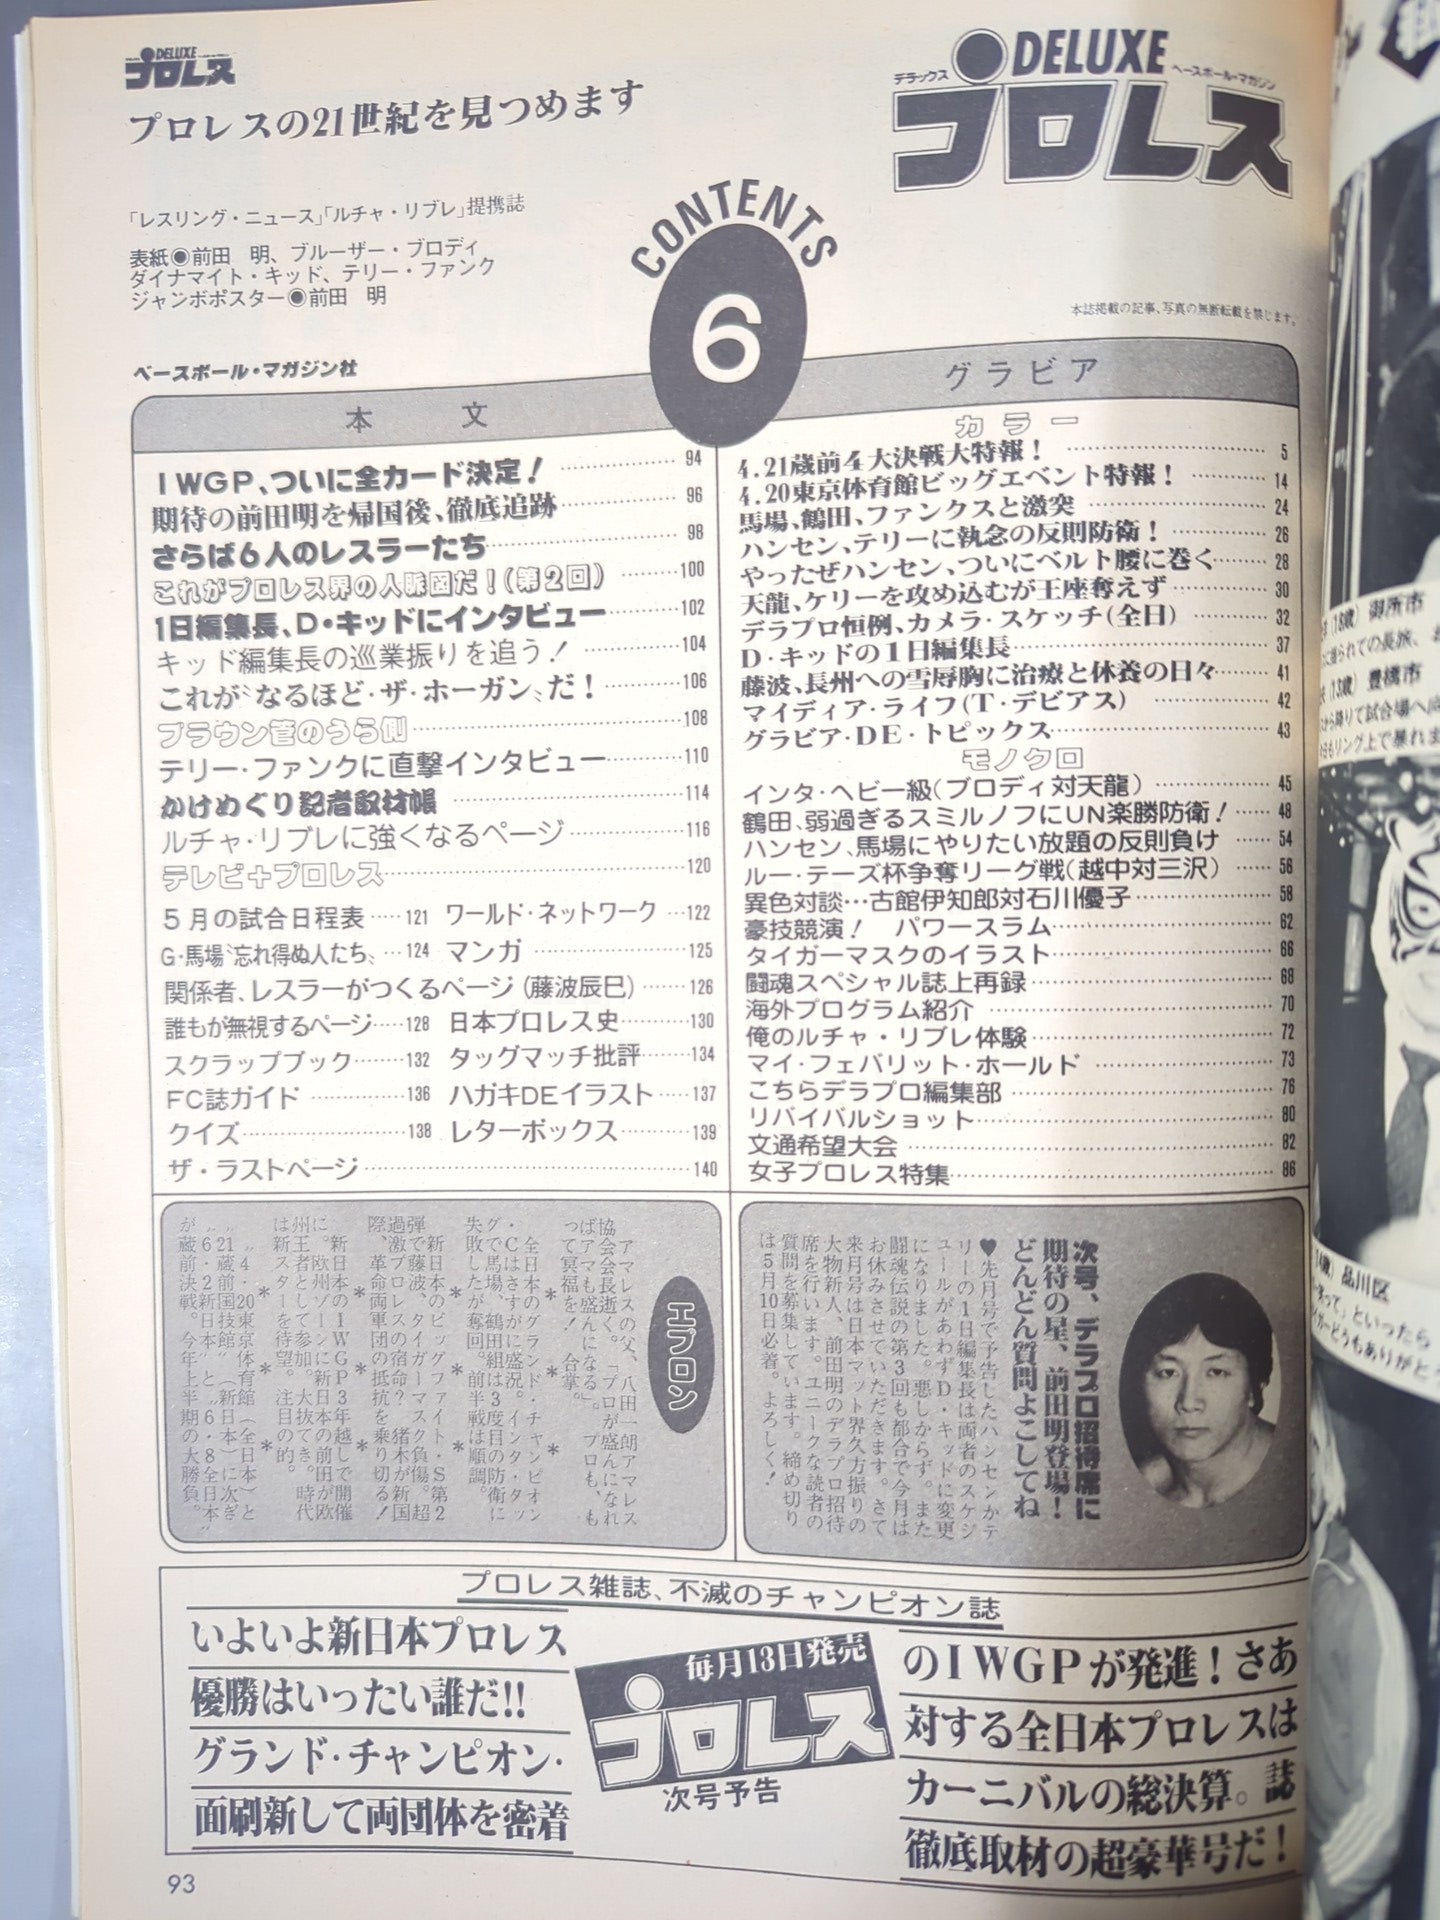 DELUXE
プロレス
プロレスの21世紀を見つめます
「レスリング・ニュース」「ルチャ・リブレ」提携誌
表紙◉前田 明、ブルーザー・ブロディ
ダイナマイト・キッド、テリー・ファンク
ジャンボポスター◉前田 明
ベースボール・マガジン社
デラックス
DELUXE
ベースボール・マガジン
プロレス
CONTENTS
6
本誌掲載の記事、写真の無断転載を禁じます。
本 文
IWGP、ついに全カード決定! 94
期待の前田明を帰国後、徹底追跡 96
さらば6人のレスラーたち 98
これがプロレス界の人脈図だ!(第2回) 100
1日編集長、D・キッドにインタビュー 102
キッド編集長の巡業振りを追う! 104
これが〝なるほど・ザ・ホーガン〟だ! 106
ブラウン管のうら側 108
テリー・ファンクに直撃インタビュー 110
かけめぐり記者取材帳 114
ルチャ・リブレに強くなるページ 116
テレビ+プロレス 120
5月の試合日程表 121 ワールド・ネットワーク 122
G・馬場〝忘れ得ぬ人たち〟 124 マンガ 125
関係者、レスラーがつくるページ(藤波辰巳) 126
誰もが無視するページ 128 日本プロレス史 130
スクラップブック 132 タッグマッチ批評 134
FC誌ガイド 136 ハガキDEイラスト 137
クイズ 138 レターボックス 139
ザ・ラストページ 140
グラビア
カラー
4.21蔵前4大決戦大特報! 5
4.20東京体育館ビッグエベント特報! 14
馬場、鶴田、ファンクスと激突 24
ハンセン、テリーに執念の反則防衛! 26
やったぜハンセン、ついにベルト腰に巻く 28
天龍、ケリーを攻め込むが王座奪えず 30
デラプロ恒例、カメラ・スケッチ(全日) 32
D・キッドの1日編集長 37
藤波、長州への雪辱胸に治療と休養の日々 41
マイディア・ライフ(T・デビアス) 42
グラビア・DE・トピックス 43
モノクロ
インタ・ヘビー級(ブロディ対天龍) 45
鶴田、弱過ぎるスミルノフにUN楽勝防衛! 48
ハンセン、馬場にやりたい放題の反則負け 54
ルー・テーズ杯争奪リーグ戦(越中対三沢) 56
異色対談…古館伊知郎対石川優子 58
豪技競演! パワースラム 62
タイガーマスクのイラスト 66
闘魂スペシャル誌上再録 68
海外プログラム紹介 70
俺のルチャ・リブレ体験 72
マイ・フェバリット・ホールド 73
こちらデラプロ編集部 76
リバイバルショット 80
文通希望大会 82
女子プロレス特集 86
エプロン
アマレスの父、八田一朗アマレス
協会会長逝く。「プロが盛んになれ
ばアマも盛んになる」。プロも、も
って冥福を! 合掌。
*
全日本のグランド・チャンピオン
・Cはさすがに盛況。インタ・タッ
グで馬場、鶴田組は3度目の防衛に
失敗したが奪回。前半戦は順調。
*
新日本のビッグファイト・S第2
弾で藤波、タイガーマスク負傷。超
過激プロレスの宿命? 猪木が新国
際、革命両軍団の抵抗を乗り切る!
*
新日本のIWGP3年越しで開催
に。欧州ゾーンに新日本の前田が欧
州王者として参加。大抜てき。時代
は新スターを待望。注目の的。
*
〝4・20東京体育館(全日本)と
〝21蔵前国技館〟(新日本)に次ぎ
〝6・2新日本〟と〝6・8全日本〟
が蔵前決戦。今年上半期の大勝負。
次号、デラプロ招待席に
期待の星、前田明登場!
どんどん質問よこしてね
♥先月号で予告したハンセンかテ
リーの1日編集長は両者のスケジ
ュールがあわずD・キッドに変更
になりました。悪しからず。また
闘魂伝説の第3回も都合で今月は
お休みさせていただきます。さて
来月号は日本マット界久方振りの
大物新人、前田明のデラプロ招待
席を行います。ユニークな読者の
質問を募集しています。締め切り
は5月10日必着。よろしく!
プロレス雑誌、不滅のチャンピオン誌
いよいよ新日本プロレス
優勝はいったい誰だ!!
グランド・チャンピオン・
面刷新して両団体を密着
毎月13日発売
プロレス
次号予告
のIWGPが発進!さあ
対する全日本プロレスは
カーニバルの総決算。誌
徹底取材の超豪華号だ!
93
(18歳) 御所市
(13歳) 豊橋市
品川区